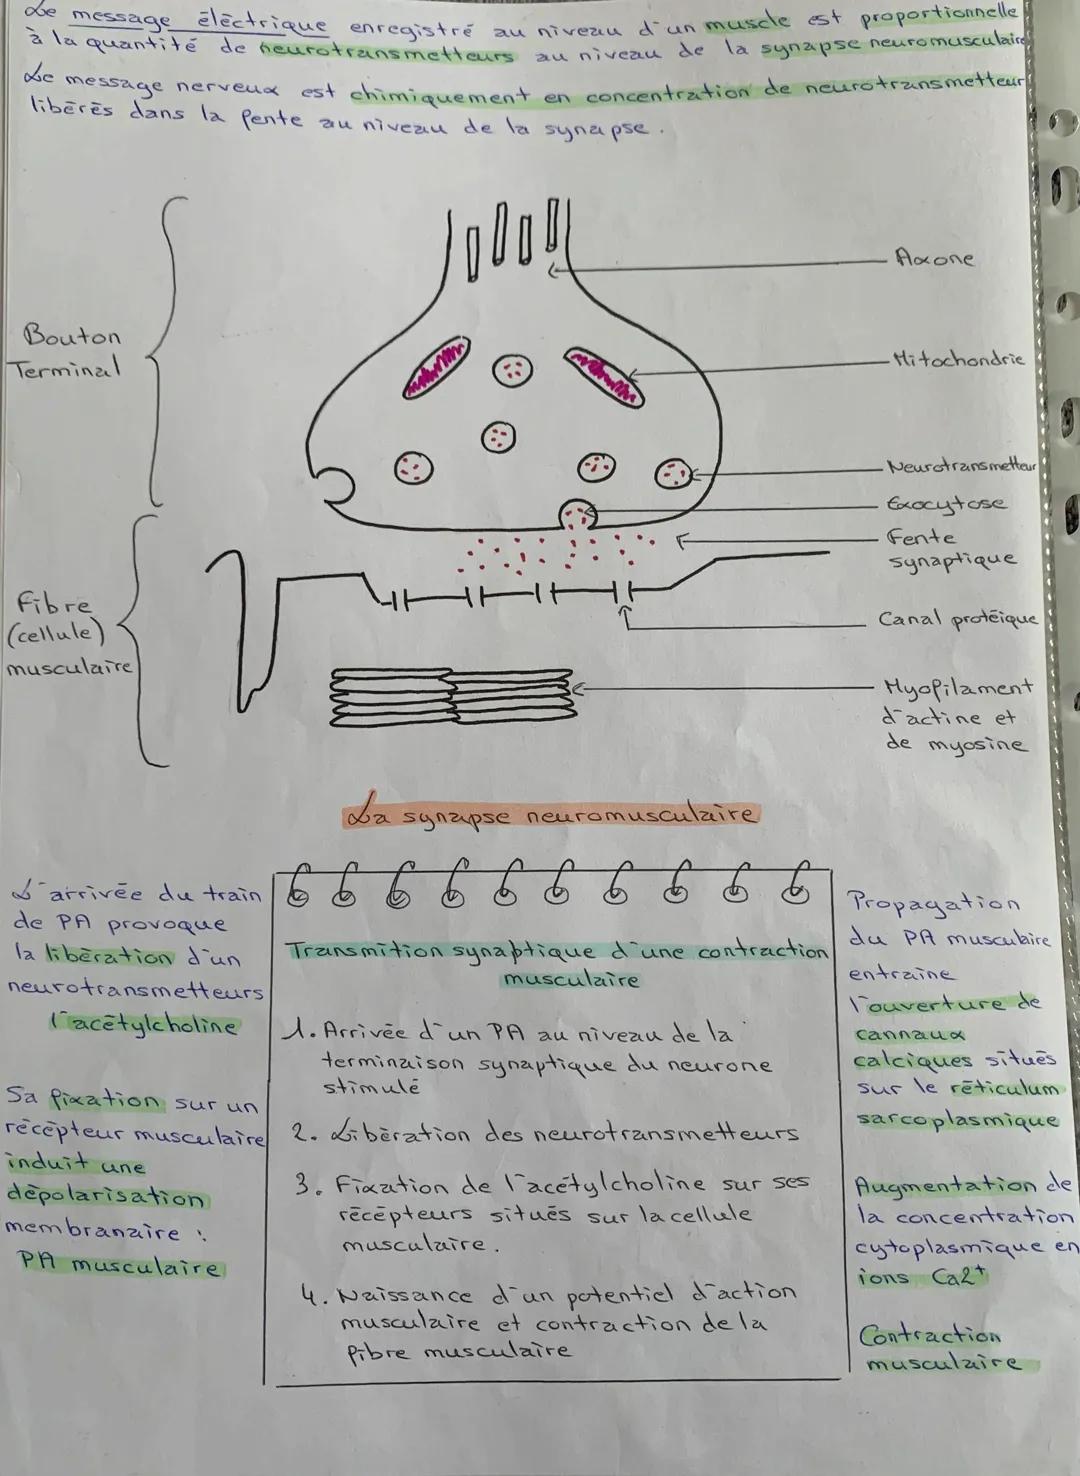 Le message éléctrique enregistré au niveau d'un muscle est proportionnelle
à la quantité de neurotransmetteurs au niveau de la synapse neuromusculaire
Le message nerveux est chimiquement en concentration de neurotransmetteur
libérés dans la fente au niveau de la synapse.
Axone
Bouton
Terminal
Mitochondrie
Neurotransmetteur
Exocytose
Fente
synaptique
Fibre
(cellule)
musculaire
Canal protéique
Myofilament
d'actine et
de myosine
La synapse neuromusculaire
L'arrivée du train
de PA provoque
la libération d'un
neurotransmetteurs
l'acétylcholine
Sa fixation sur un
récépteur musculaire
induit une
dépolarisation
membranaire :
PA musculaire
Transmition synaptique d'une contraction
musculaire
1. Arrivée d'un PA au niveau de la
terminaison synaptique du neurone
stimulé
2. Libération des neurotransmetteurs
3. Fixation de l'acétylcholine sur ses
récépteurs situés sur la cellule
musculaire.
4. Naissance d'un potentiel d'action
musculaire et contraction de la
fibre musculaire
Propagation
du PA musculaire
entraîne
l'ouverture de
cannaux
calciques situés
sur le réticulum
sarcoplasmique
Augmentation de
la concentration
cytoplasmique en
ions Ca2+
Contraction
musculaire